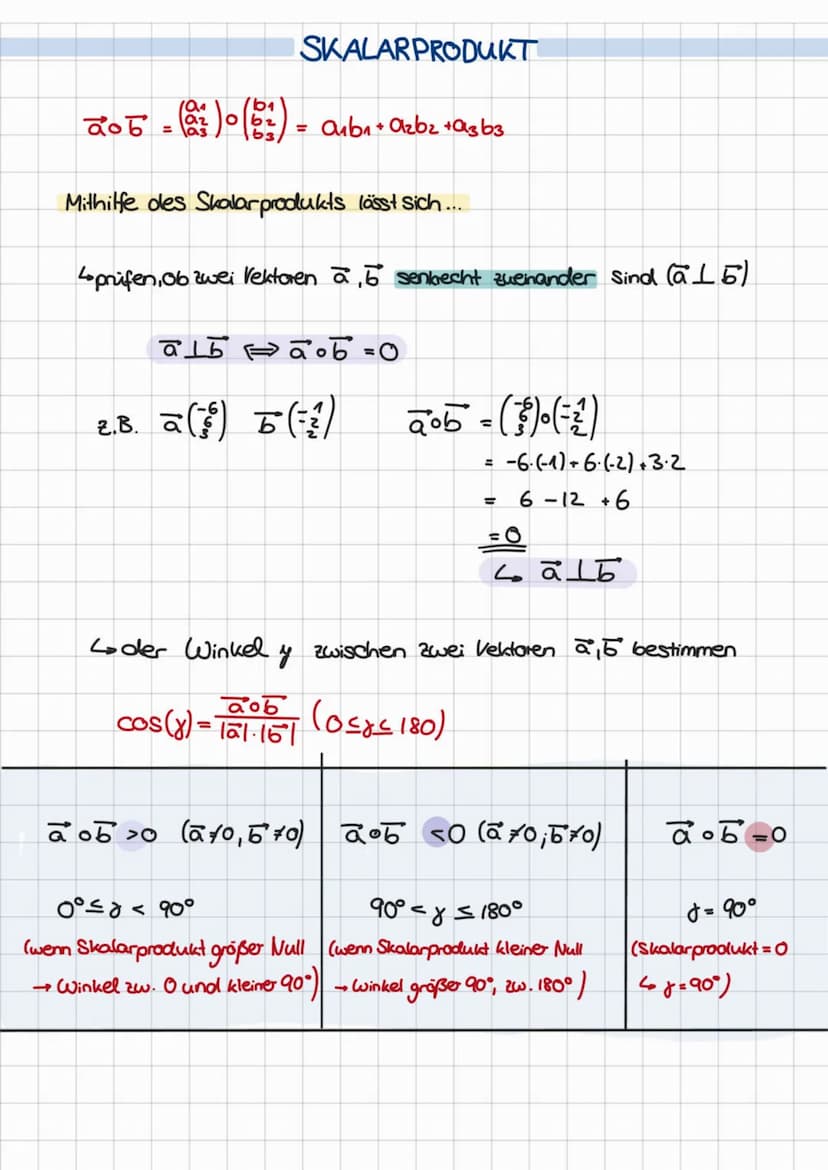 SKALARPRODUKT
a⃗∘b⃗ = (a1 a2 a3)∘(b1 b2 b3) = a1b1 + a2b2 + a3b3
Mithilfe des Skalarprodukts lässt sich...
↳ prüfen, ob zwei Vektoren a⃗, b⃗ senkrecht zueinander sind (a⃗ ⊥ b⃗)
a⃗ ⊥ b⃗ ⟺ a⃗∘b⃗ = 0
z.B. a⃗(-6 6 3) b⃗(-1 -2 2) a⃗∘b⃗ = (-6 6 3)∘(-1 -2 2)
= -6·(-1) + 6·(-2) + 3·2
= 6 - 12 + 6
= 0
↳ a⃗ ⊥ b⃗
↳ der Winkel γ zwischen zwei Vektoren a⃗, b⃗ bestimmen
cos(γ) = a⃗∘b⃗ / |a⃗|·|b⃗| (0 ≤ γ ≤ 180)
a⃗∘b⃗ >0 (a⃗≠0, b⃗≠0)
0° ≤ γ < 90°
(wenn Skalarprodukt größer Null
→ Winkel zw. 0 und kleiner 90°)
a⃗∘b⃗ <0 (a⃗≠0; b⃗≠0)
90° < γ ≤ 180°
(wenn Skalarprodukt kleiner Null
→ Winkel größer 90°, zw. 180°)
a⃗∘b⃗ = 0
γ = 90°
(Skalarprodukt = 0
↳ γ = 90°)